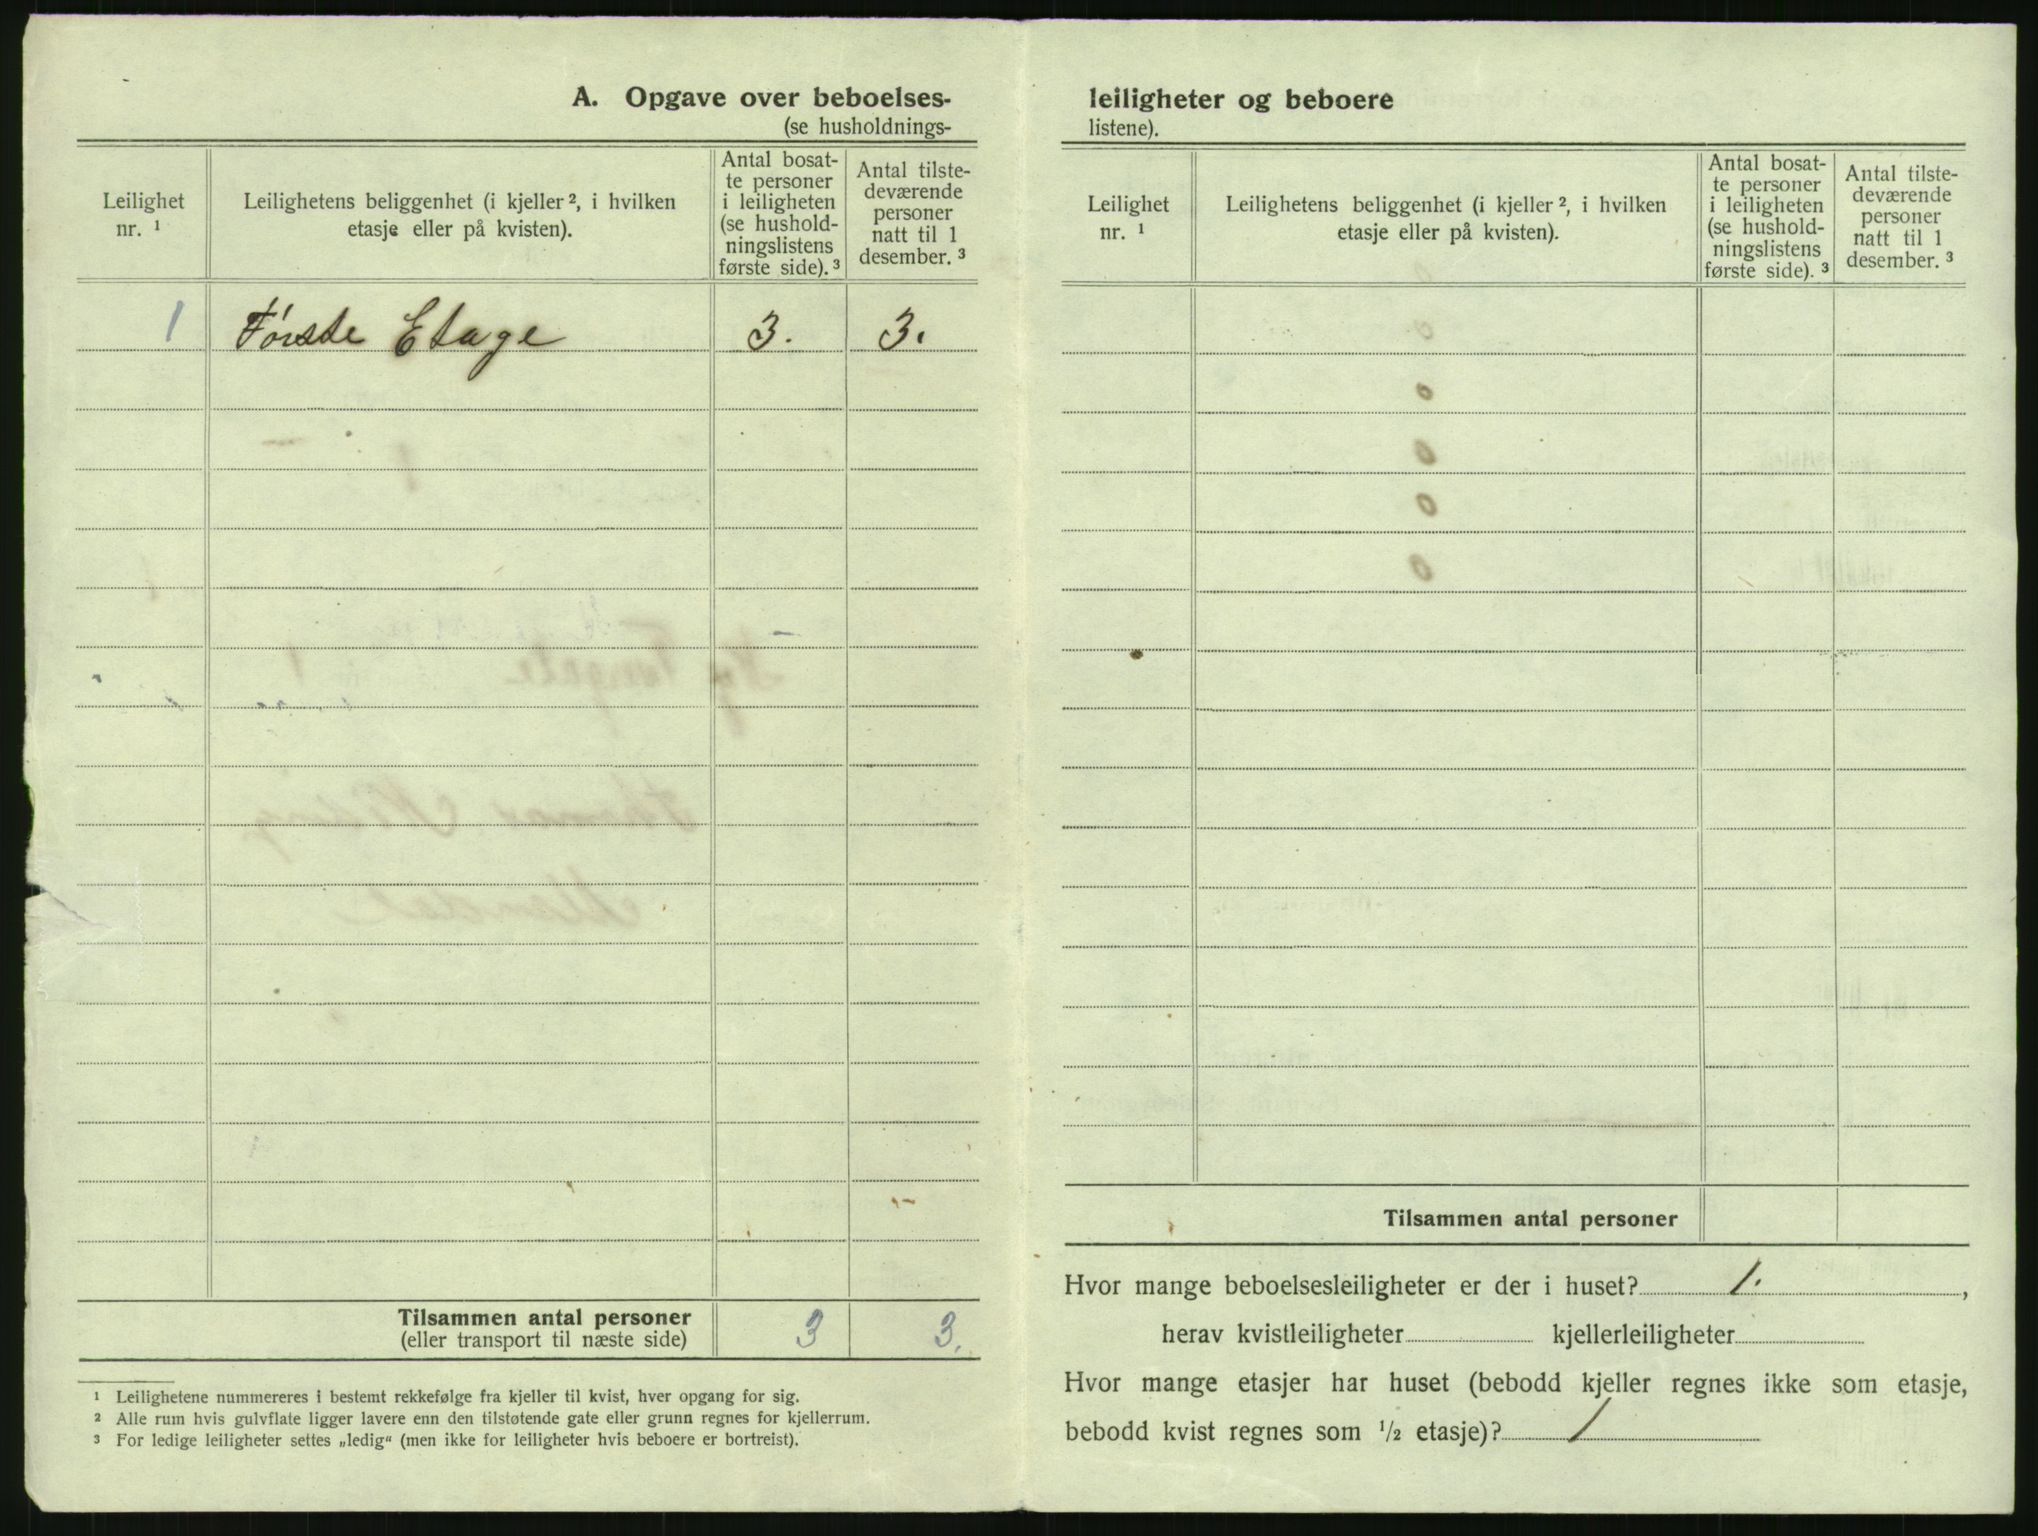 A. Opgave over beboelses-
(se husholdnings-
Leilighet
nr. ¹
Leilighetens beliggenhet (i kjeller ², i hvilken
etasje eller på kvisten).
Antal bosat-
te personer
i leiligheten
(se hushold-
ningslistens
første side). ³
Antal tilste-
deværende
personer
natt til 1
desember. ³
1 Første Etage 3. 3.
Tilsammen antal personer 3 3.
(eller transport til næste side)
¹ Leilighetene nummereres i bestemt rekkefølge fra kjeller til kvist, hver opgang for sig.
² Alle rum hvis gulvflate ligger lavere enn den tilstøtende gate eller grunn regnes for kjellerrum.
³ For ledige leiligheter settes „ledig“ (men ikke for leiligheter hvis beboere er bortreist).
leiligheter og beboere
listene).
Leilighet
nr. ¹
Leilighetens beliggenhet (i kjeller ², i hvilken
etasje eller på kvisten).
Antal bosat-
te personer
i leiligheten
(se hushold-
ningslistens
første side). ³
Antal tilste-
deværende
personer
natt til 1
desember. ³
Tilsammen antal personer
Hvor mange beboelsesleiligheter er der i huset? 1. ,
herav kvistleiligheter kjellerleiligheter
Hvor mange etasjer har huset (bebodd kjeller regnes ikke som etasje,
bebodd kvist regnes som ½ etasje)? 1